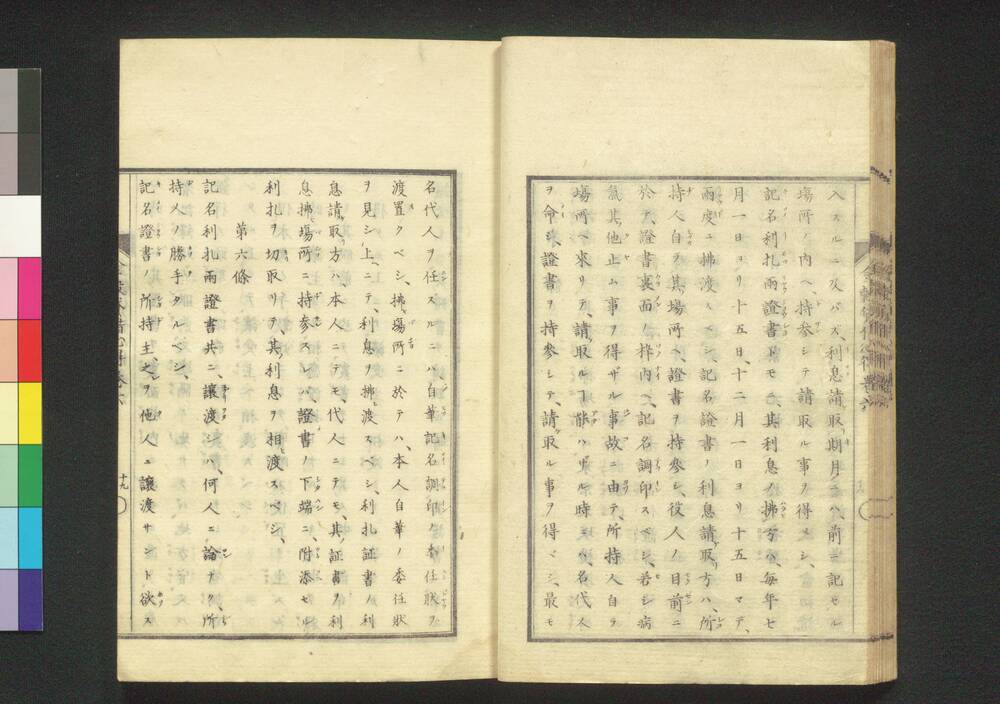 入スルニ及バス、利息請取期月ニハ、前ニ記セル
場所ノ内ヘ、持参シテ請取ル事ヲ得ベシ、
記名利札両證書トモニ、其利息ノ拂方ハ、毎年七
月一日ヨリ十五日、十二月一日ヨリ十五日マテ、
両度ニ拂渡スベシ、記名證書ノ利息請取方ハ、所
持人自ラ其場所ヘ、證書ヲ持参シ、役人ノ目前ニ
於テ、證書裏面ノ枠内ヘ、記名調印スベシ、若シ病
氣其他止ム事ヲ得ザル事故ニ由テ、所持人自ラ
場所ヘ來リテ、請取ル能ハザル時ハ、名代人
ヲ命シ、證書ヲ持参シテ、請取ル事ヲ得ベシ、最モ
名代人ヲ任スルニハ自筆記名調印ノ委任状ヲ
渡置クベシ、拂場所ニ於テハ、本人自筆ノ委任状
ヲ見シ上ニテ、利息ヲ拂渡スベシ、利札証書ノ利
息請取方ハ、本人ニテモ代人ニテモ、其証書ヲ利
息拂場所ニ持参スレバ證書ノ下端ニ、附添セル
利札ヲ切取リテ、其利息ヲ相渡スベシ、
第六條
記名利札両證書共ニ、讓渡シハ、何人ニ論ナク、所
持人ノ勝手タルベシ、
記名證書ノ所持主、之ヲ他人ニ讓渡サント欲ス
十九